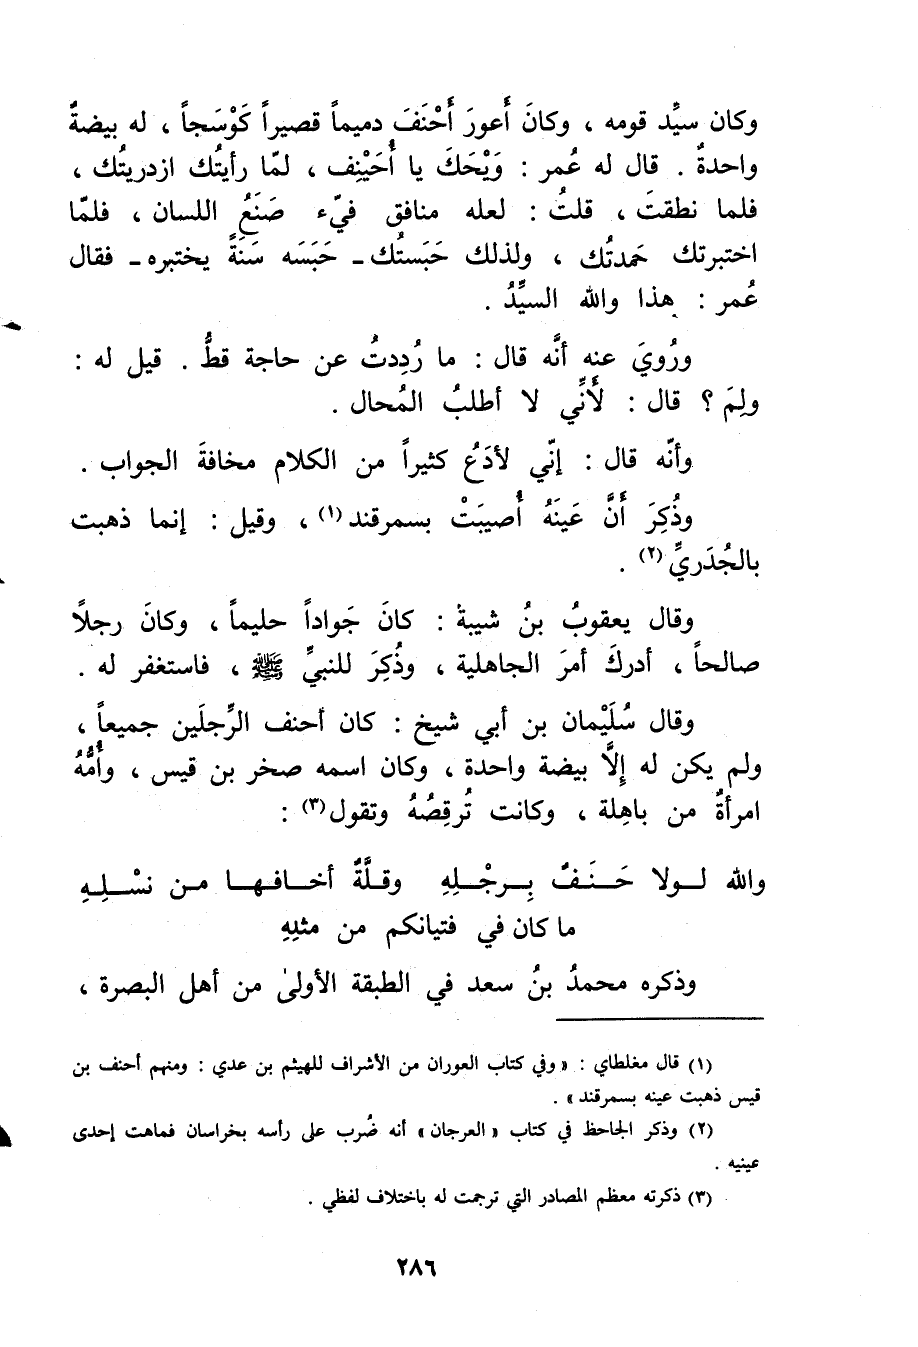 وكان سيِّد قومه ، وكانَ أَعورَ أَحْنَفَ دميماً قصيراً كَوْسَجاً ، له بيضةٌ
واحدةٌ . قال له عُمر : وَيْحَكَ يا أُحَيْنِف ، لمّا رأيتُك ازدريتُك ،
فلما نطقتَ ، قلتُ : لعله منافق فيّء صَنَعُ اللسان ، فلمّا
اختبرتك حَمدتُك ، ولذلك حَبَستُك ـ حَبَسَه سَنَةً يختبره ـ فقال
عُمر : هذا والله السيِّدُ .
ورُويَ عنه أنَّه قال : ما رُدِدتُ عن حاجة قطُّ . قيل له :
ولِمَ ؟ قال : لأَنِّي لا أطلبُ المُحال .
وأنّه قال : إنّي لأدَعُ كثيراً من الكلام مخافةَ الجواب .
وذُكِرَ أَنَّ عَينَهُ أُصيبَتْ بسمرقند(١) ، وقيل : إنما ذهبت
بالجُدَريِّ(٢) .
وقال يعقوبُ بنُ شيبة : كانَ جَواداً حليماً ، وكانَ رجلًا
صالحاً ، أدركَ أمرَ الجاهلية ، وذُكِرَ للنبيِّ ﷺ ، فاستغفر له .
وقال سُلَيْمان بن أبي شيخ : كان أحنف الرِّجلَين جميعاً ،
ولم يكن له إلَّا بيضة واحدة ، وكان اسمه صخر بن قيس ، وأُمُّهُ
امرأةٌ من باهِلة ، وكانت تُرقِصُهُ وتقول(٣) :
والله لـولا حَـنَـفٌ بِـرجْـلِهِ وقـلَّةٌ أخـافـهـا مـن نسْـلِـهِ
ما كان في فتيانكم من مثلِهِ
وذكره محمدُ بنُ سعد في الطبقة الأولىٰ من أهل البصرة ،
(١) قال مغلطاي : « وفي كتاب العوران من الأشراف للهيثم بن عدي : ومنهم أحنف بن
قيس ذهبت عينه بسمرقند » .
(٢) وذكر الجاحظ في كتاب « العرجان » أنه ضُرب على رأسه بخراسان فماهت إحدى
عينيه .
(٣) ذكرته معظم المصادر التي ترجمت له باختلاف لفظي .
٢٨٦